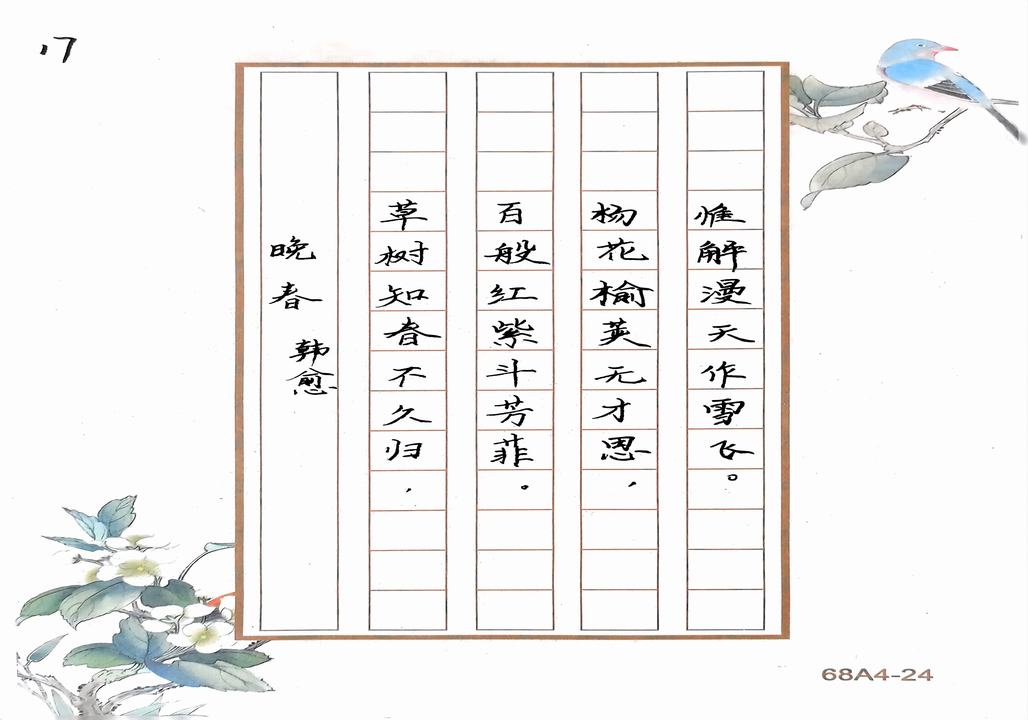 17
晚春 韩愈
草树知春不久归，
百般红紫斗芳菲。
杨花榆荚无才思，
惟解漫天作雪飞。
68A4-24